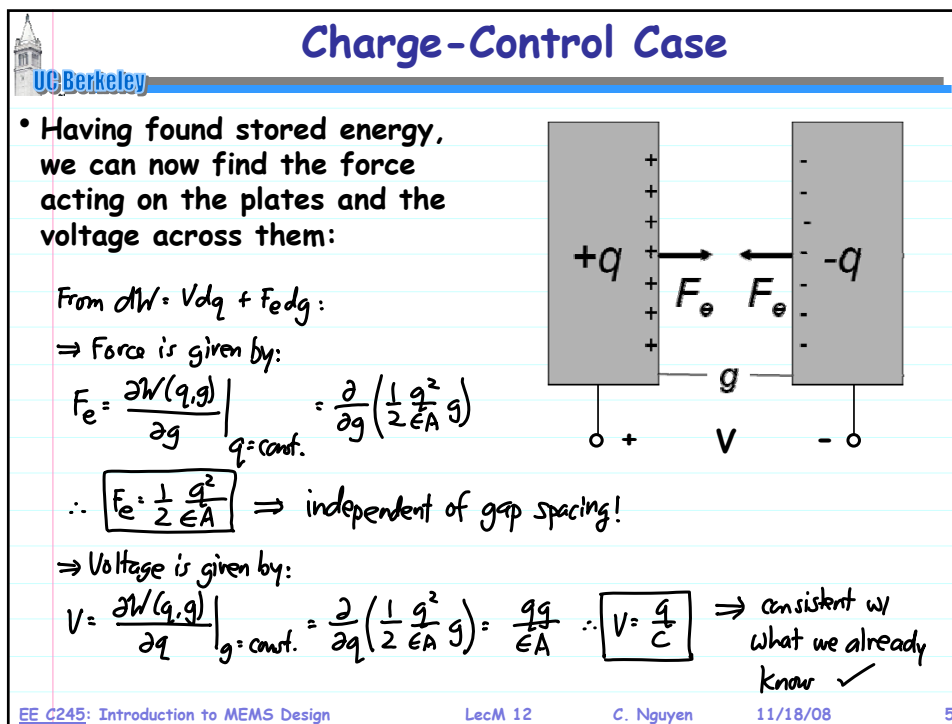 Charge-Control Case
UC Berkeley
• Having found stored energy,
we can now find the force
acting on the plates and the
voltage across them:
+q
-q
+
+
+
+
+
+
+
-
-
-
-
-
-
-
Fₑ Fₑ
g
+ V -
From dW = Vdq + Fₑdg:
⇒ Force is given by:
Fₑ = ∂W(q,g)/∂g |q=const. = ∂/∂g (1/2 q²/εA g)
∴ Fₑ = 1/2 q²/εA ⇒ independent of gap spacing!
⇒ Voltage is given by:
V = ∂W(q,g)/∂q |g=const. = ∂/∂q (1/2 q²/εA g) = qg/εA ∴ V = q/C ⇒ consistent w/
what we already
know ✓
EE C245: Introduction to MEMS Design LecM 12 C. Nguyen 11/18/08 5